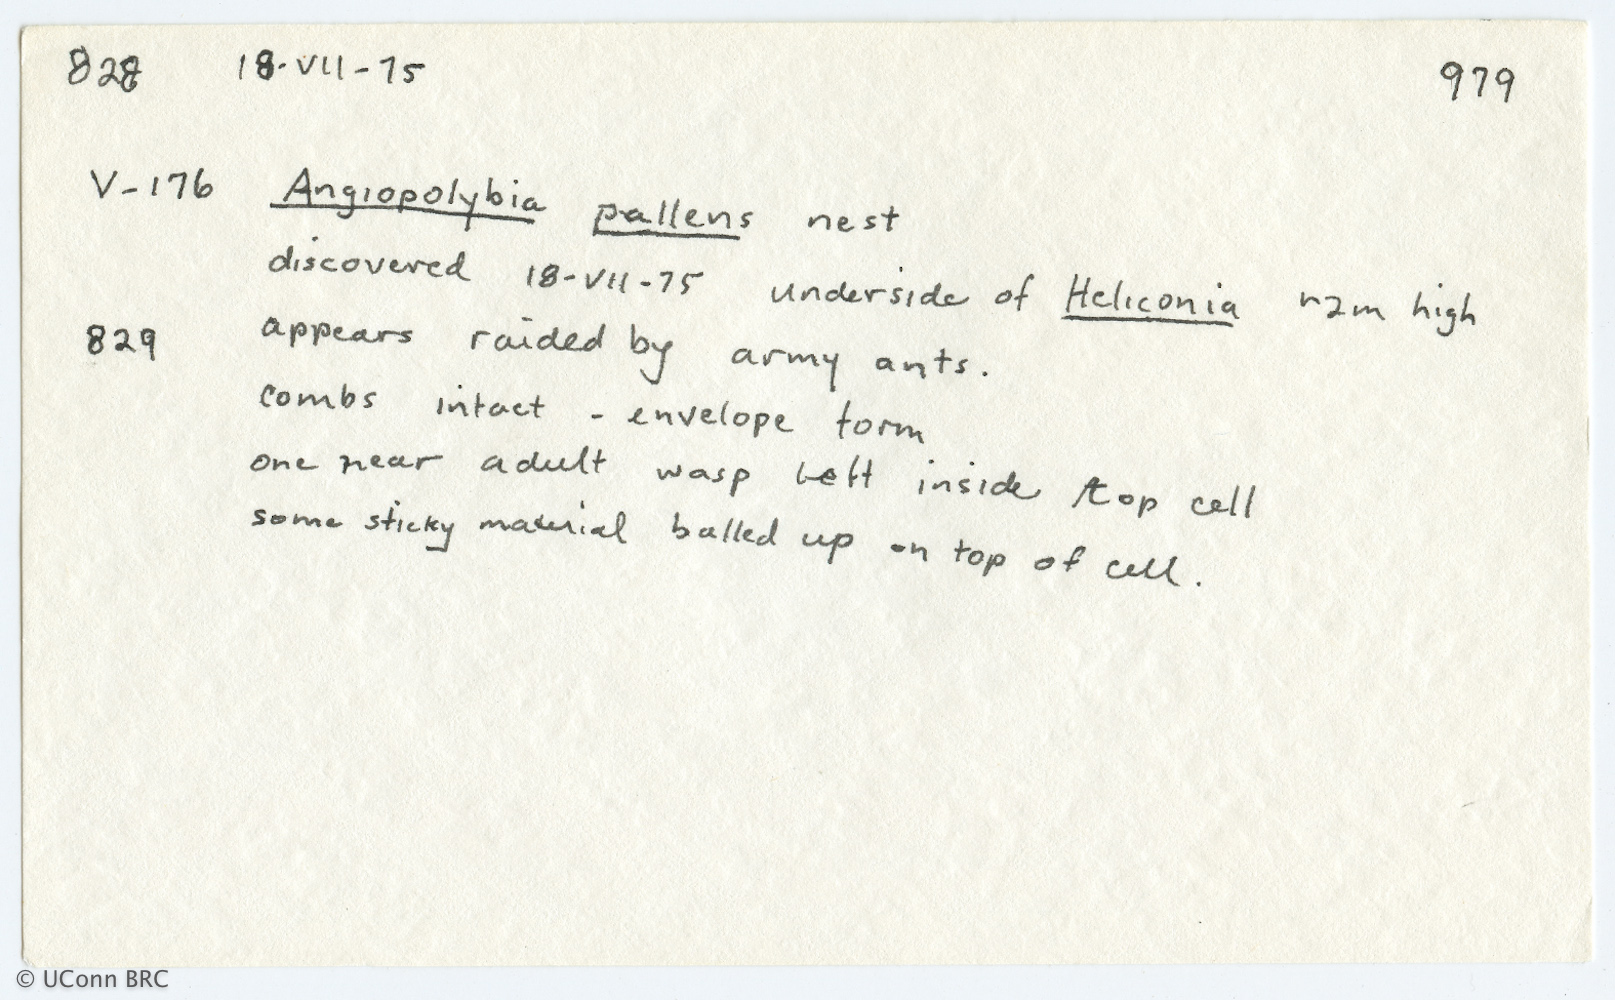 828 18-VII-75 979
V-176 Angiopolybia pallens nest
discovered 18-VII-75 underside of Heliconia ~2m high
829 appears raided by army ants.
combs intact - envelope torn
one near adult wasp left inside top cell
some sticky material balled up on top of cell.
© UConn BRC